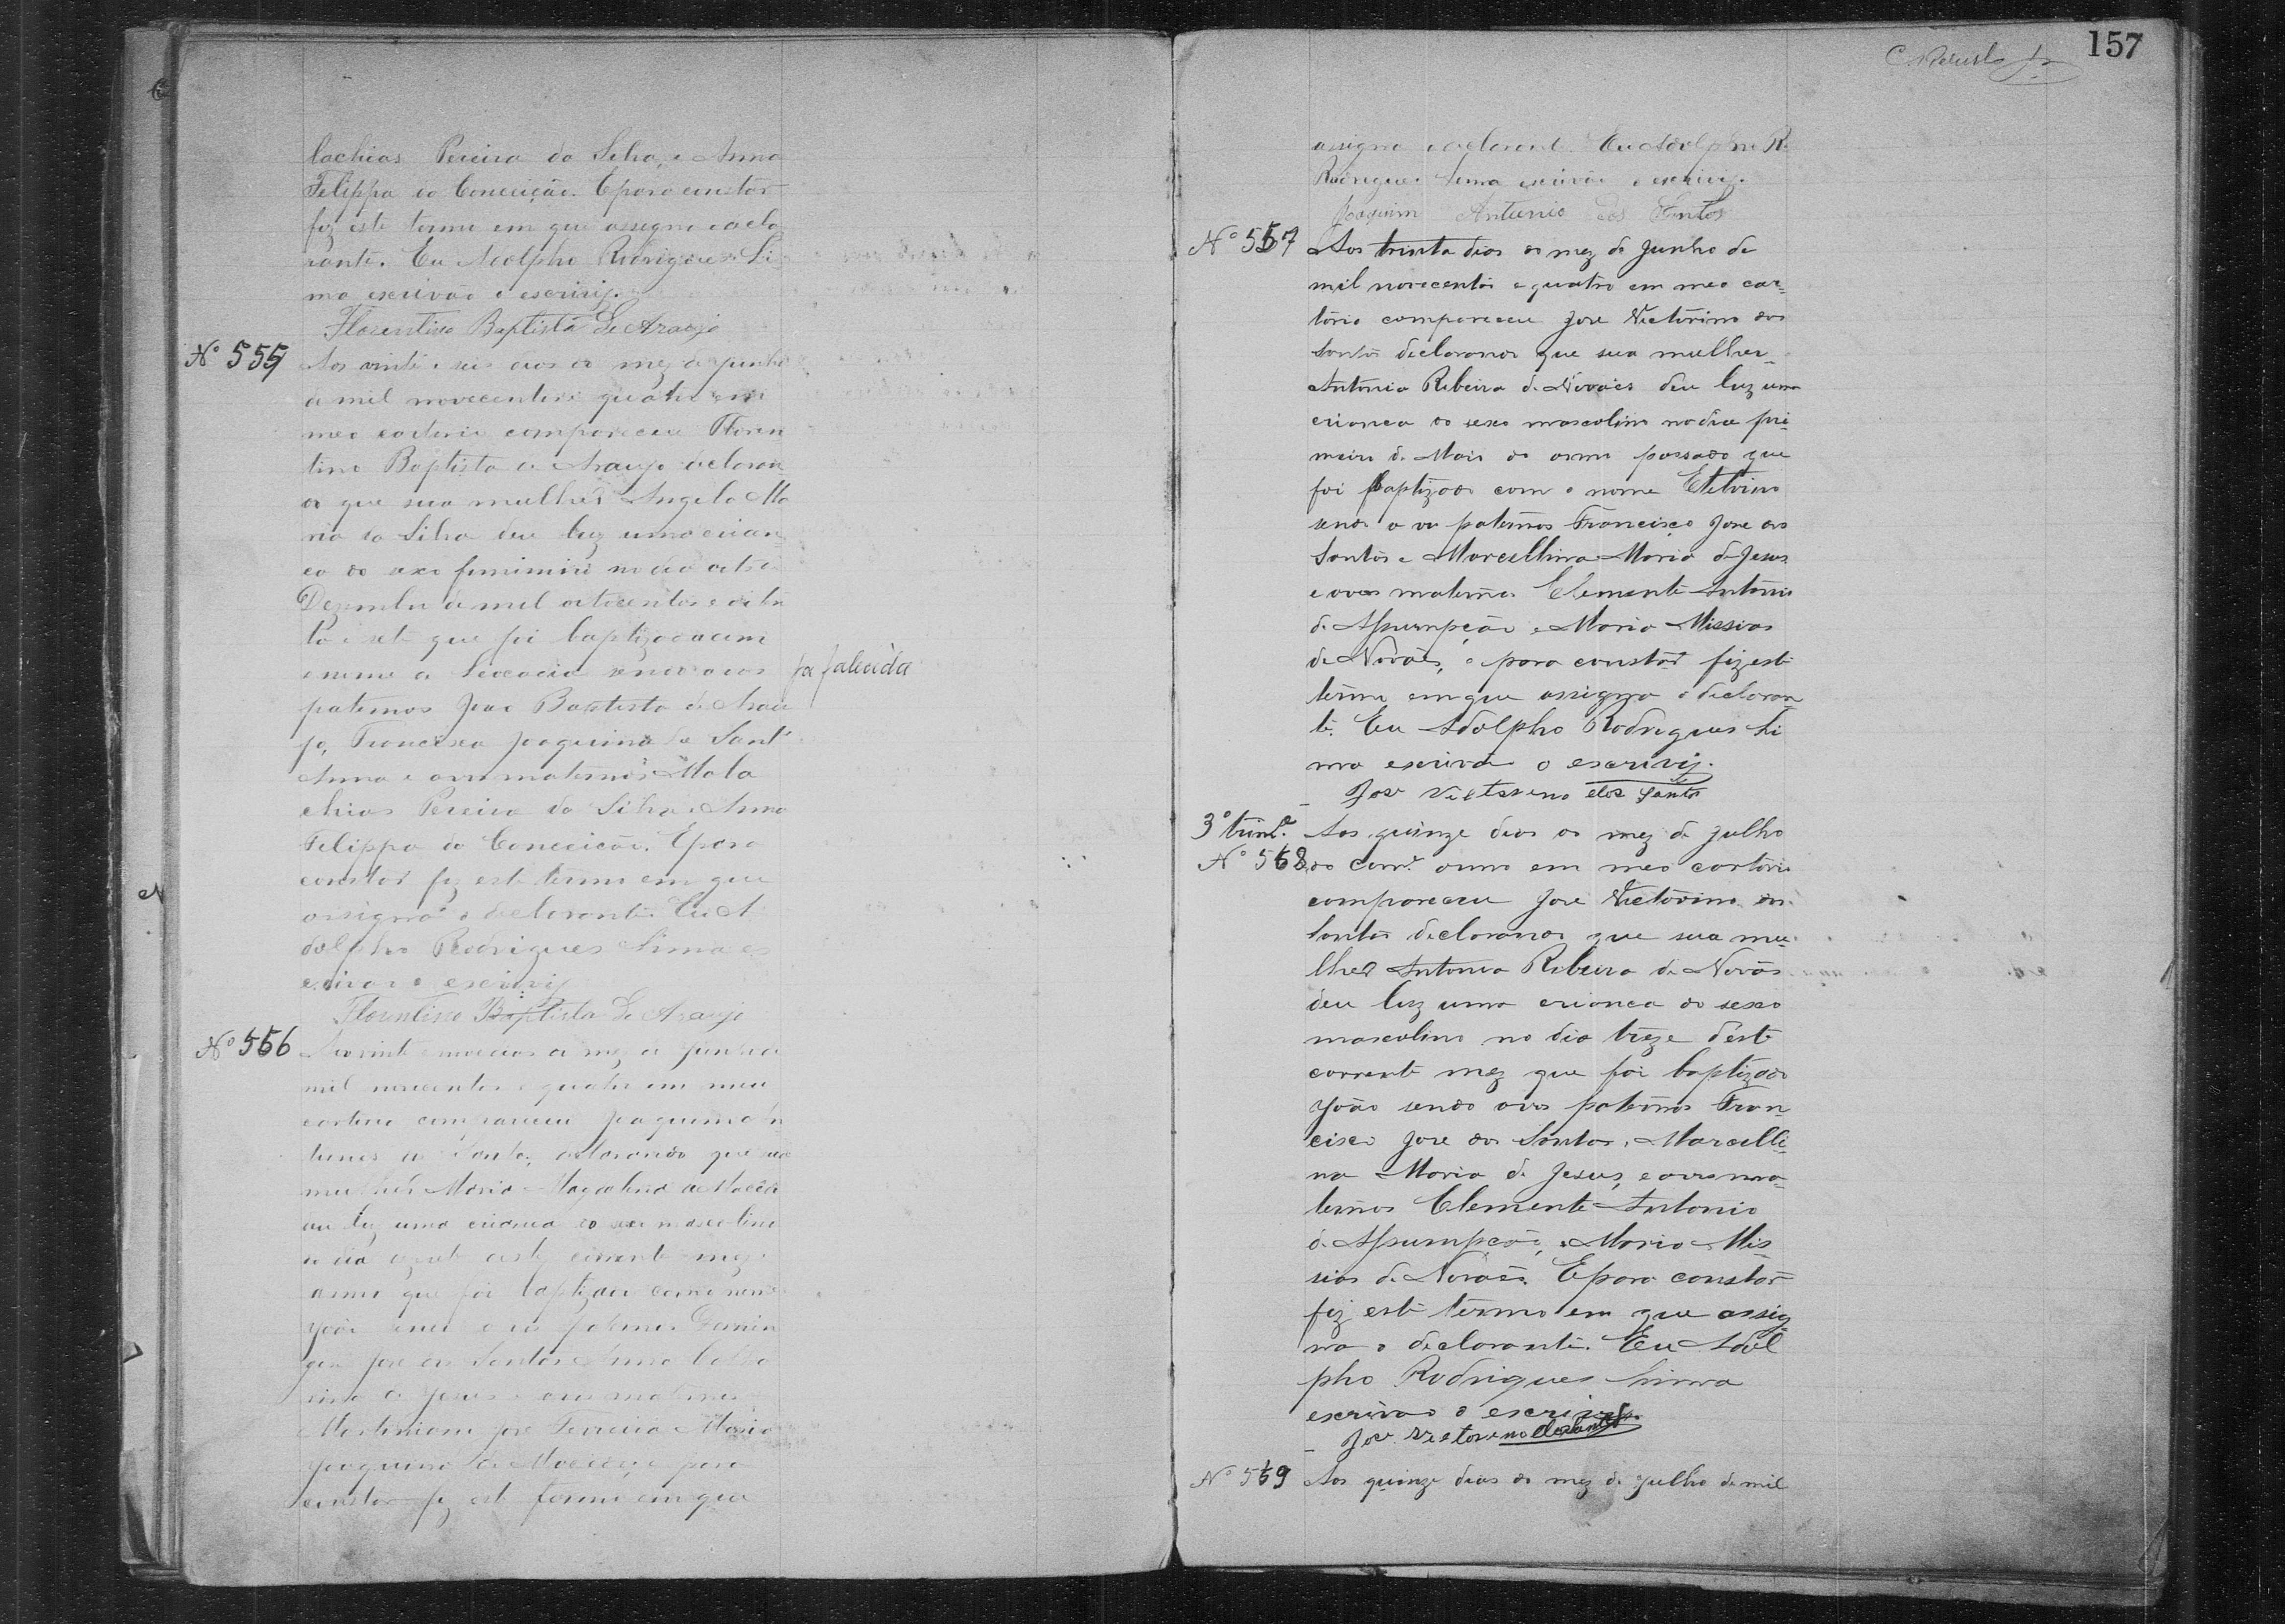 lachias Pereira da Silva, e Anna
Felippa da Conceição. E para constar
fiz este termo em que assigna o decla
rante. Eu Adolpho Rodrigues Li
ma escrivão o escrivij.
Florentino Baptista de Araujo
Nº 555
Aos vinte e seis dias do mez de junho
de mil novecentos e quatro em
meo cartorio compareceu Floren
tino Baptista de Araujo declaran
do que sua mulher Angela Ma
ria da Silva deu luz uma crian
ca do sexo feminino no dia oito de
Dezembro de mil oitocentos e oiten
ta e sete que foi baptizada com
o nome de sendo avos
foi falecida
paternos João Baptista de Arau
jo, Francisca Joaquina de Sant'
Anna e avos maternos Mala
chias Pereira da Silva e Anna
Felippa da Conceição. E para
constar fiz este termo em que
assigna o declarante. Eu A
dolpho Rodrigues Lima es
crivão o escrivij
Florentino Baptista de Araujo
Nº 556
Aos vinte e nove dias do mez de junho de
mil novecentos e quatro em meu
cartorio compareceu Joaquim An
tunes dos Santos, declarando que sua
mulher Maria Magdalena de
deu luz uma criança do sexo masculino
no dia deste corrente mez e
anno que foi baptizado com o nome
João sendo avos paternos Domin
gos José dos Santos Anna
de Jesus e avos maternos
Martiniano José Ferreira e Maria
Joaquina de e para
constar fiz este termo em que
157
assigna o declarante. Eu Adolpho R.
Rodrigues Lima escrivão o escrivij.
Joaquim Antunio dos Santos
Nº 557
Aos trinta dias do mez de Junho de
mil novecentos e quatro em meo car-
tório compareceu José Victorino dos
Santos declarando que sua mulher
Antonia Ribeira de Novaes deu luz uma
crianca do sexo masculino no dia pri-
meiro de Maio do anno passado que
foi baptizado com o nome Etelvino
sendo a vos paternos Francisco José dos
Santos e Marcellina Maria de Jesus
e avos maternos Clemente Antonio
de Assumpção e Maria Missias
de Novaes, e para constar fiz este
termo em que assigna o declaran
te. Eu Adolpho Rodrigues Li
ma escrivão o escrivij.
José Victoreno dos Santos
3º trime.
Aos quinze dias do mez de Julho
Nº 558
do corre. anno em meo cartorio
compareceu José Victorino dos
Santos declarando que sua mu-
lher Antonia Ribeira de Novas
deu luz uma crianca do sexo
masculino no dia treze d'este
corrente mez que foi baptizado
João sendo avos paternos Fran
cisco José dos Santos, Marcelli-
na Maria de Jesus, e avos ma-
ternos Clemente Antonio
de Assumpção, e Maria Mis-
sias de Novaes. E para constar
fiz este termo em que assig
na o declarante. Eu Adol
pho Rodrigues Lima
escrivão o escrivij.
José Victoreno dos Santos
Nº 559
Aos quinze dias do mez de Julho de mil